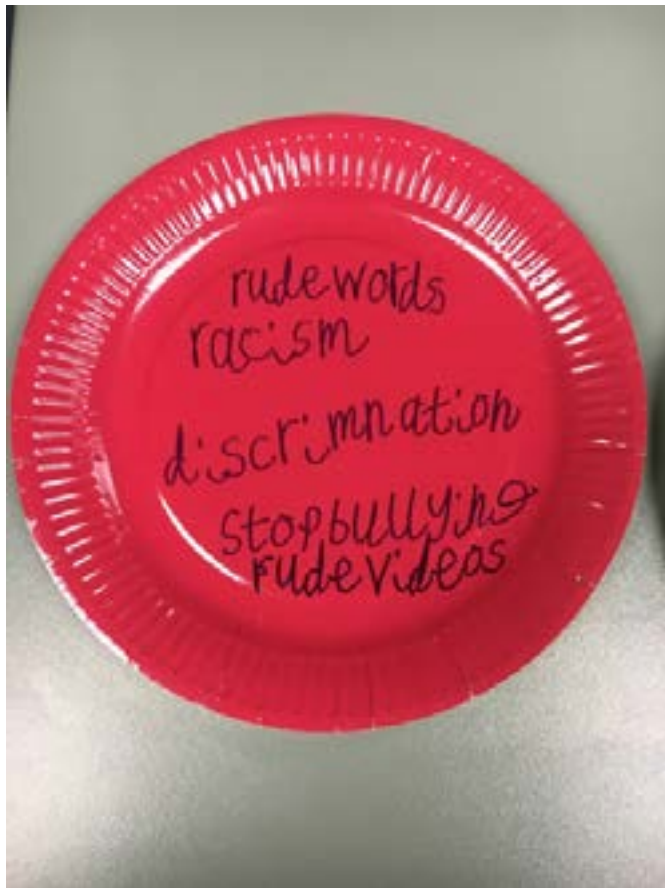 rude words
racism
discrimnation
stop bullying
rude videos